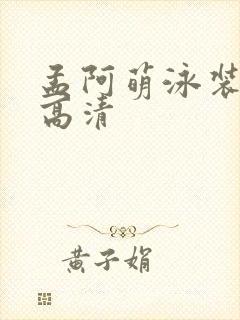 孟阿萌泳装
高清
黄子娟